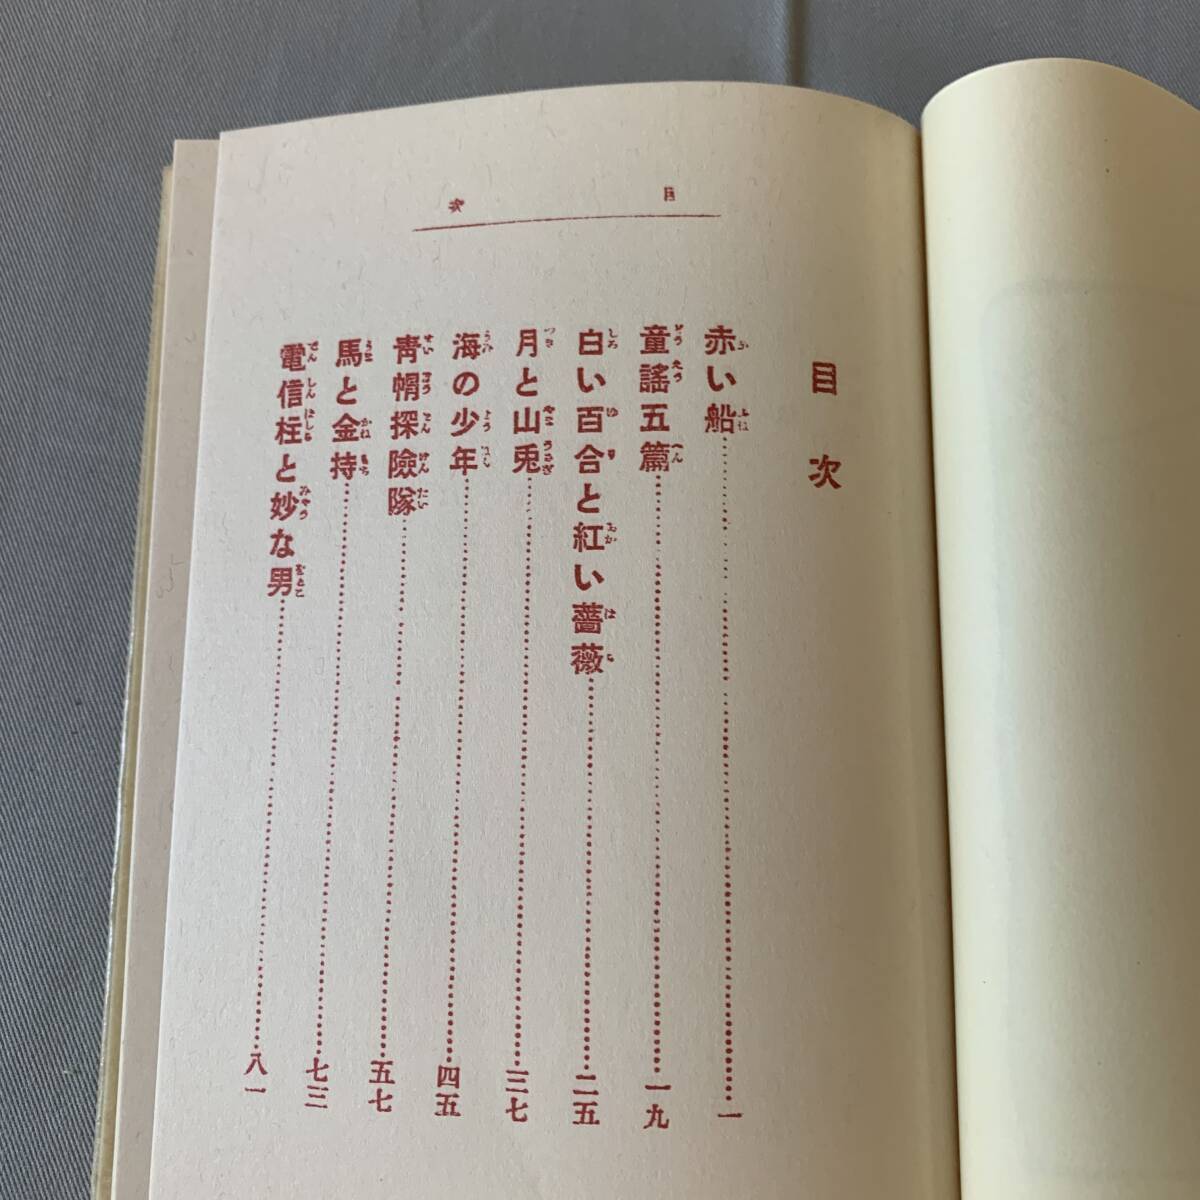 目次
目次
赤い船……一
童謠五篇……一九
白い百合と紅い薔薇……二五
月と山兎……三七
海の少年……四五
靑帽探險隊……五七
馬と金持……七三
電信柱と妙な男……八一